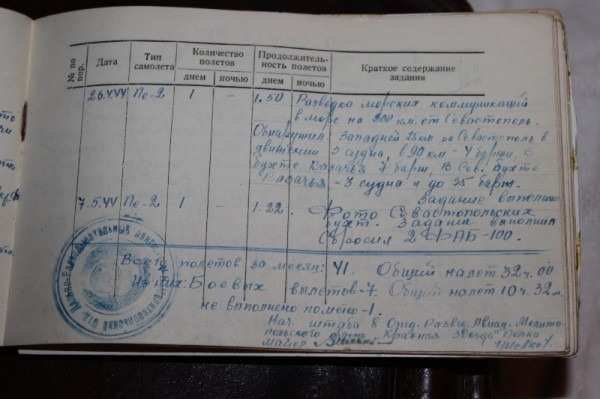 № по пор.
Дата
Тип самолета
Количество полетов
днем
ночью
Продолжитель-ность полетов
днем
ночью
Краткое содержание задания
26.4.44 Пе-2 1 – 1.50 – Разведка морских коммуникаций
в море на 200 км. от Севастополь.
Обнаружил: Западней 25км Севастополь в
движении 3 судна, в 90 км - 4 баржи, в
бухте Казачья 7 барж, В Сев. бухте
Казачья - 3 судна и до 35 барж.
Задание выполнил
7.5.44 Пе-2 1 – 1.22. – Фото Севастопольских
бухт. Задание выполнил
Сбросил 2 ФАБ-100.
Всего полетов за месяц: 41. Общий налет 32ч. 00
Из них: Боевых вылетов-7. Общий налет 10ч. 32м.
не выполнено помето-1.
Нач. штаба 8 Отд. Развед. Авиац. Мелито
польского Красной Звезды полка
майор